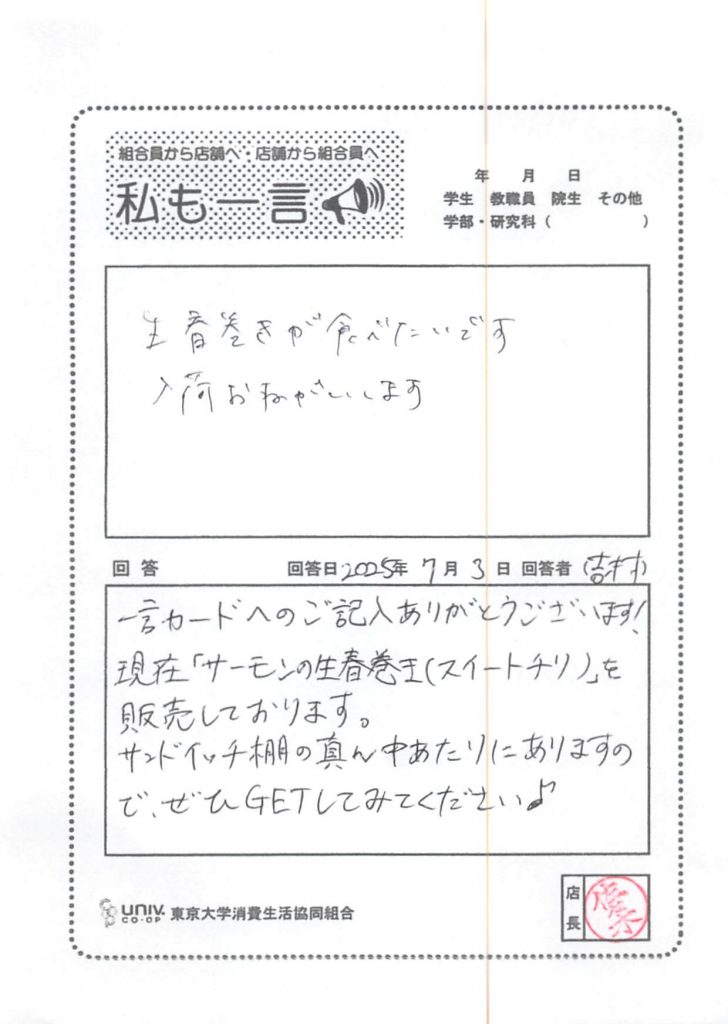 組合員から店舗へ・店舗から組合員へ
私も一言
年 月 日
学生 教職員 院生 その他
学部・研究科( )
生春巻きが食べたいです
入荷おねがいします
回答 回答日2025年 7月 3日 回答者(吉村)
一言カードへのご記入ありがとうございます!
現在「サーモンの生春巻き(スイートチリ)」を
販売しております。
サンドイッチ棚の真ん中あたりにありますの
で、ぜひGETしてみてください♪
UNIV. CO-OP 東京大学消費生活協同組合
店長